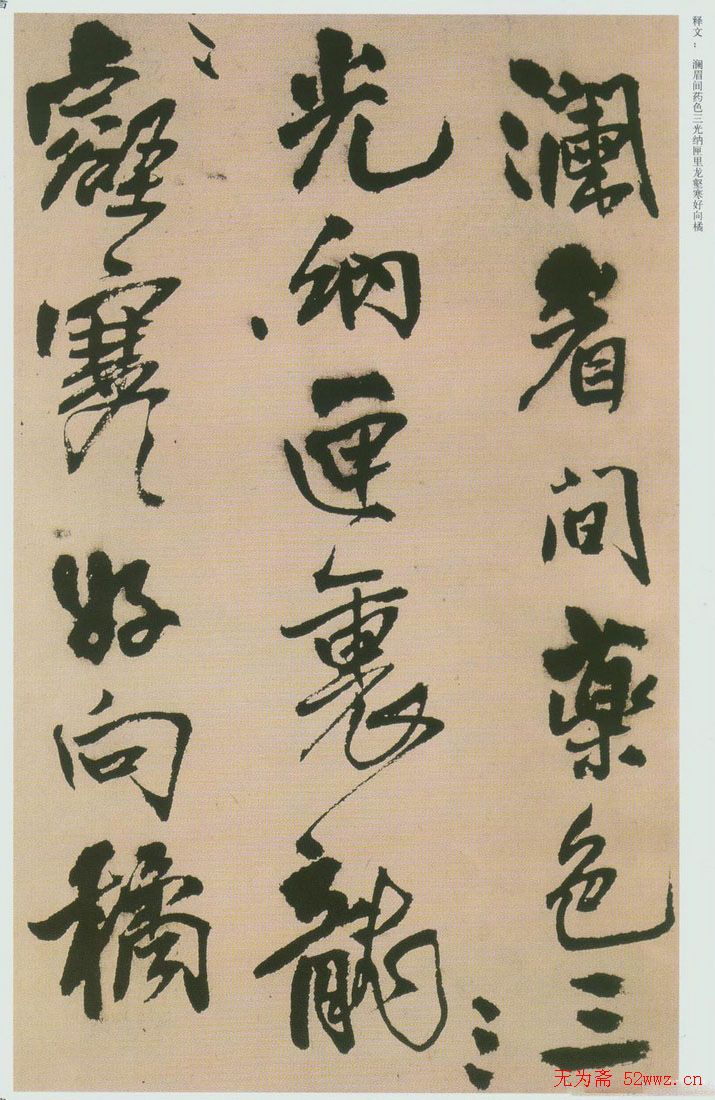 释文： 澜眉间药色三光纳匣里龙壑寒好向橘
瀾眉間藥色三
光納匣裏龍
壑寒好向橘
无为斋 52wwz.cn